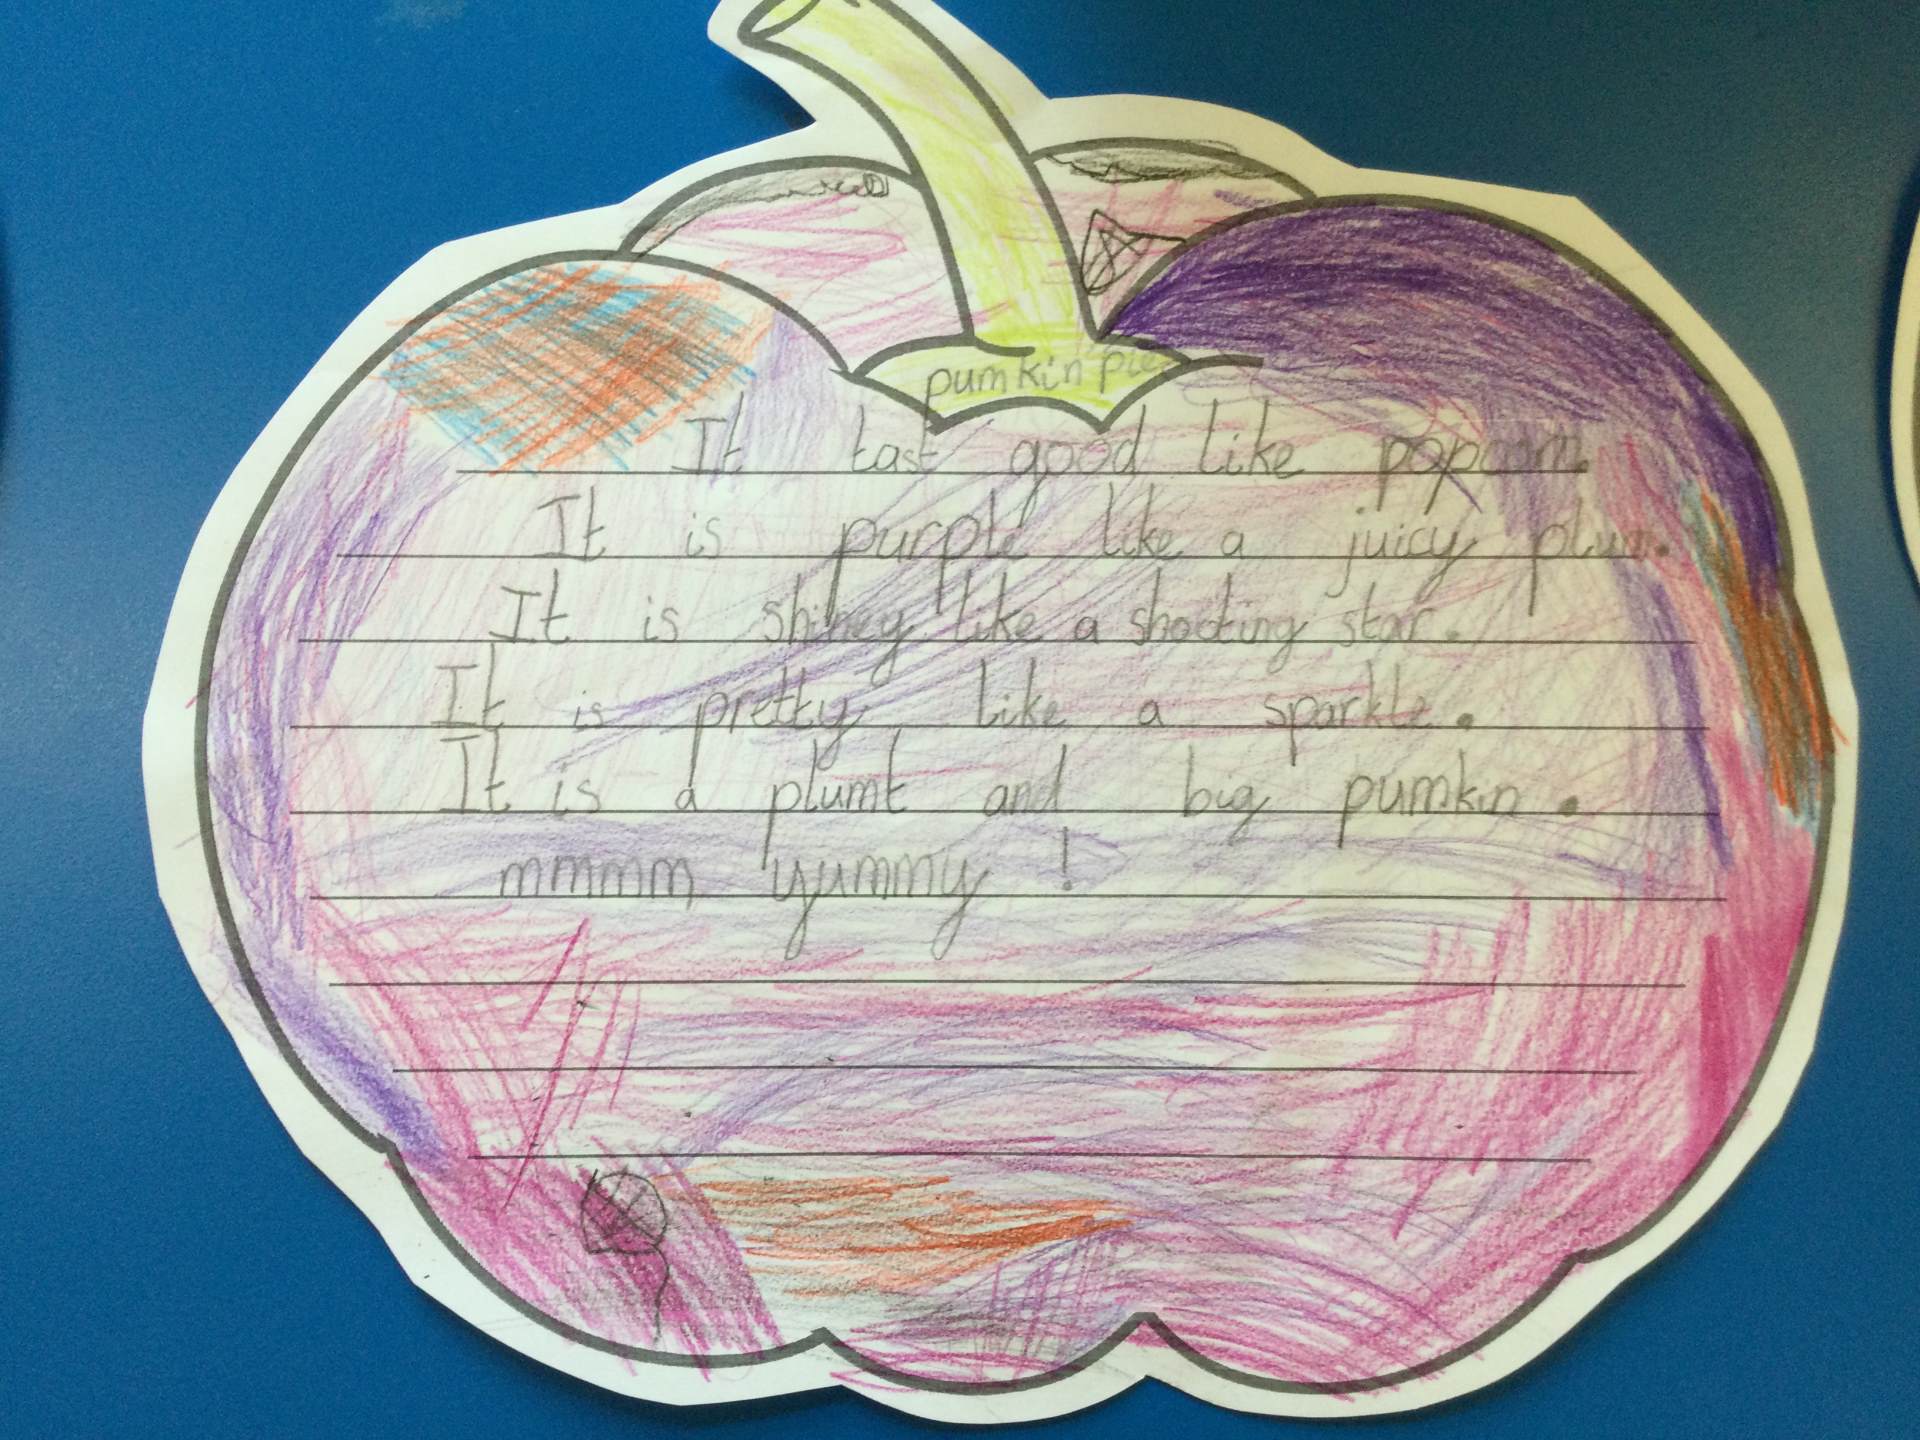 pumkin pie
It tast good like popcorn.
It is purple like a juicy plum.
It is shiney like a shooting star.
It is pretty like a sparkle.
It is a plumt and big pumkin.
mmmm yummy !